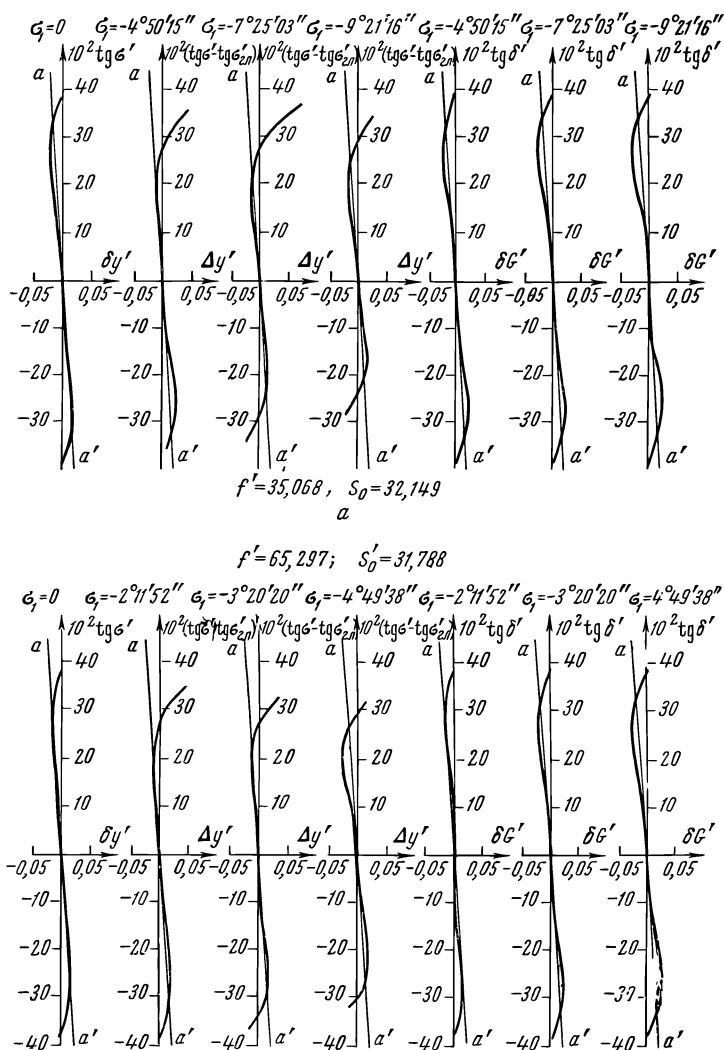 σ₁=0 σ₁=-4°50'15" σ₁=-7°25'03" σ₁=-9°21'16" σ₁=-4°50'15" σ₁=-7°25'03" σ₁=-9°21'16"
10² tg σ' 10²(tgσ'-tgσ'₂л) 10²(tgσ'-tgσ'₂л) 10²(tgσ'-tgσ'₂л) 10² tg δ' 10² tg δ' 10² tg δ'
a a a a a a a
40 40 40 40 40 40 40
30 30 30 30 30 30 30
20 20 20 20 20 20 20
10 10 10 10 10 10 10
δy' Δy' Δy' Δy' δG' δG' δG'
-0,05 0,05 -0,05 0,05 -0,05 0,05 -0,05 0,05 -0,05 0,05 -0,05 0,05 -0,05 0,05
-10 -10 -10 -10 -10 -10 -10
-20 -20 -20 -20 -20 -20 -20
-30 -30 -30 -30 -30 -30 -30
a' a' a' a' a' a' a'
f'=35,068 , S₀=32,149
a
f'=65,297; S₀'=31,788
σ₁=0 σ₁=-2°11'52" σ₁=-3°20'20" σ₁=-4°49'38" σ₁=-2°11'52" σ₁=-3°20'20" σ₁=4°49'38"
10² tg σ' 10²(tgσ'-tgσ'₂л) 10²(tgσ'-tgσ'₂л) 10² tg δ' 10² tg δ' 10² tg δ'
a a a a a a a
40 40 40 40 40 40 40
30 30 30 30 30 30 30
20 20 20 20 20 20 20
10 10 10 10 10 10 10
δy' Δy' Δy' Δy' δG' δG' δG'
-0,05 0,05 -0,05 0,05 -0,05 0,05 -0,05 0,05 -0,05 0,05 -0,05 0,05 -0,05 0,05
-10 -10 -10 -10 -10 -10 -10
-20 -20 -20 -20 -20 -20 -20
-30 -30 -30 -30 -30 -30 -39
-40 a' -40 a' -40 a' -40 a' -40 a' -40 a' -40 a'